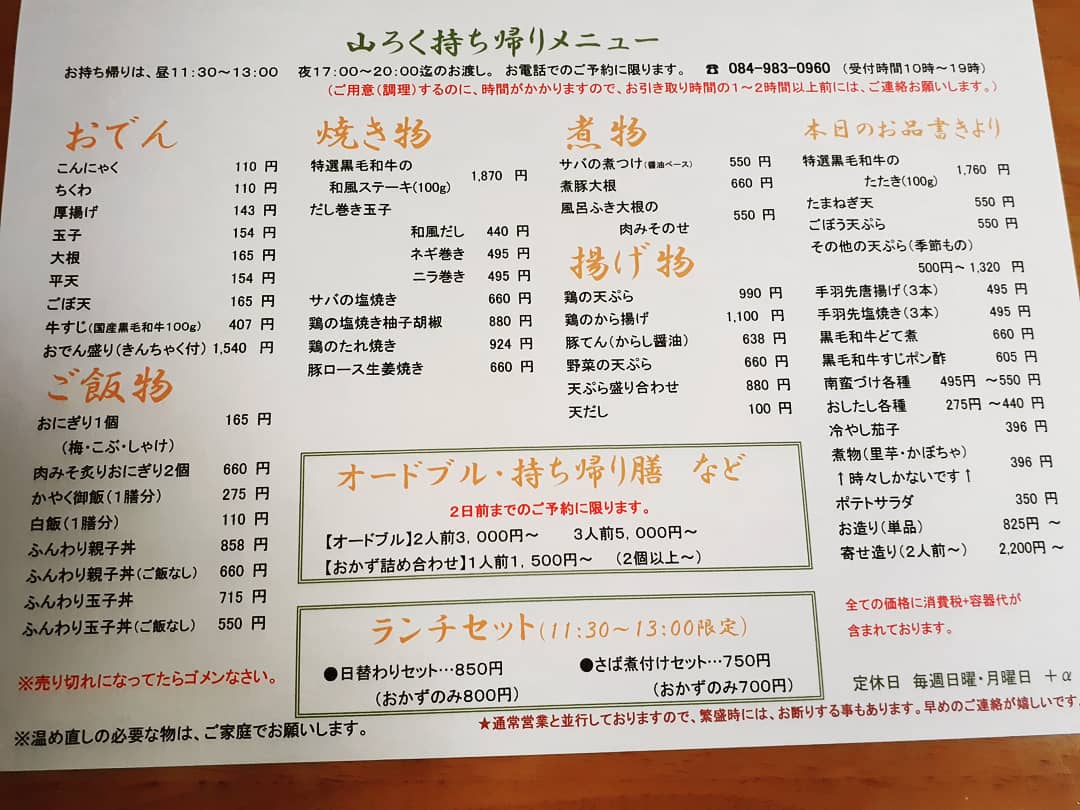 山ろく持ち帰りメニュー
お持ち帰りは、昼11:30~13:00 夜17:00~20:00迄のお渡し。 お電話でのご予約に限ります。 ☎ 084-983-0960 (受付時間10時~19時)
(ご用意(調理)するのに、時間がかかりますので、お引き取り時間の1~2時間以上前には、ご連絡お願いします。)
おでん
こんにゃく 110 円
ちくわ 110 円
厚揚げ 143 円
玉子 154 円
大根 165 円
平天 154 円
ごぼ天 165 円
牛すじ(国産黒毛和牛100g) 407 円
おでん盛り(きんちゃく付) 1,540 円
ご飯物
おにぎり1個 165 円
(梅・こぶ・しゃけ)
肉みそ炙りおにぎり2個 660 円
かやく御飯(1膳分) 275 円
白飯(1膳分) 110 円
ふんわり親子丼 858 円
ふんわり親子丼(ご飯なし) 660 円
ふんわり玉子丼 715 円
ふんわり玉子丼(ご飯なし) 550 円
※売り切れになってたらゴメンなさい。
※温め直しの必要な物は、ご家庭でお願いします。
焼き物
特選黒毛和牛の
和風ステーキ(100g) 1,870 円
だし巻き玉子
和風だし 440 円
ネギ巻き 495 円
ニラ巻き 495 円
サバの塩焼き 660 円
鶏の塩焼き柚子胡椒 880 円
鶏のたれ焼き 924 円
豚ロース生姜焼き 660 円
煮物
サバの煮つけ(醤油ベース) 550 円
煮豚大根 660 円
風呂ふき大根の
肉みそのせ 550 円
揚げ物
鶏の天ぷら 990 円
鶏のから揚げ 1,100 円
豚てん(からし醤油) 638 円
野菜の天ぷら 660 円
天ぷら盛り合わせ 880 円
天だし 100 円
本日のお品書きより
特選黒毛和牛の
たたき(100g) 1,760 円
たまねぎ天 550 円
ごぼう天ぷら 550 円
その他の天ぷら(季節もの)
500円~1,320 円
手羽先唐揚げ(3本) 495 円
手羽先塩焼き(3本) 495 円
黒毛和牛どて煮 660 円
黒毛和牛すじポン酢 605 円
南蛮づけ各種 495円 ~550 円
おしたし各種 275円 ~440 円
冷やし茄子 396 円
煮物(里芋・かぼちゃ) 396 円
↑時々しかないです↑
ポテトサラダ 350 円
お造り(単品) 825円 ~
寄せ造り(2人前~) 2,200円 ~
全ての価格に消費税+容器代が
含まれております。
定休日 毎週日曜・月曜日 +α
オードブル・持ち帰り膳 など
2日前までのご予約に限ります。
【オードブル】2人前3,000円~ 3人前5,000円~
【おかず詰め合わせ】1人前1,500円~ (2個以上~)
ランチセット(11:30~13:00限定)
●日替わりセット…850円 ●さば煮付けセット…750円
(おかずのみ800円) (おかずのみ700円)
★通常営業と並行しておりますので、繁盛時には、お断りする事もあります。早めのご連絡が嬉しいです。